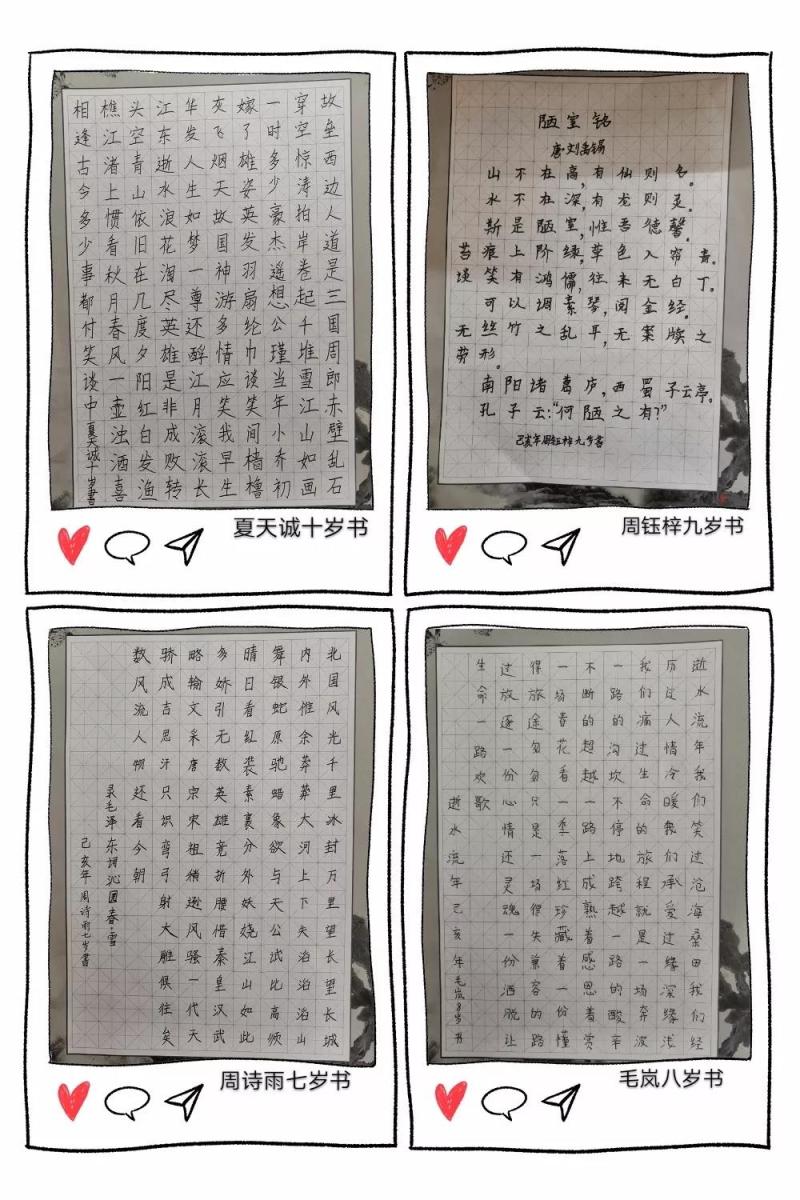 故垒西边人道是三国周郎赤壁乱石
穿空惊涛拍岸卷起千堆雪江山如画
一时多少豪杰遥想公瑾当年小乔初
嫁了雄姿英发羽扇纶巾谈笑间樯橹
灰飞烟天故国神游多情应笑我早生
华发人生如梦一尊还酹江月滚滚长
江东逝水浪花淘尽英雄是非成败转
头空青山依旧在几度夕阳红白发渔
樵江渚上惯看秋月春风一壶浊酒喜
相逢古今多少事都付笑谈中夏天诚十岁書
夏天诚十岁书
陋室铭
唐·刘禹锡
山不在高,有仙则名。
水不在深,有龙则灵。
斯是陋室,惟吾德馨。
苔痕上阶绿,草色入帘青。
谈笑有鸿儒,往来无白丁。
可以调素琴,阅金经。
无丝竹之乱耳,无案牍之
劳形。
南阳诸葛庐,西蜀子云亭。
孔子云:“何陋之有?”
己亥年周钰梓九岁書
周钰梓九岁书
北国风光千里冰封万里望长望长城
内外惟余莽莽大河上下失滔滔滔山
舞银蛇原驰蜡象欲与天公试比高须
晴日看红装素裹分外妖娆江山如此
多娇引无数英雄竞折腰惜秦皇汉武
略输文采唐宗宋祖稍逊风骚一代天
骄成吉思汗只识弯弓射大雕候往矣
数风流人物还看今朝
录毛泽东词沁园春·雪
己亥年周诗雨七岁書
周诗雨七岁书
逝水流年我们笑过沧海桑田我们经
历过人情冷暖我们承受过缘深缘浅
我们痛过生命的旅程就是一场奔波
一路的沟坎一不停地跨越一路的酸辛
不断的超越一路上成熟着感恩着赏
一场春花看一季落红珍藏着一份懂
得旅途匆匆只是一场得失兼容的路
过放逐一份心情还灵魂一份洒脱让
生命一路欢歌
逝水流年己亥年毛岚8岁书
毛岚八岁书